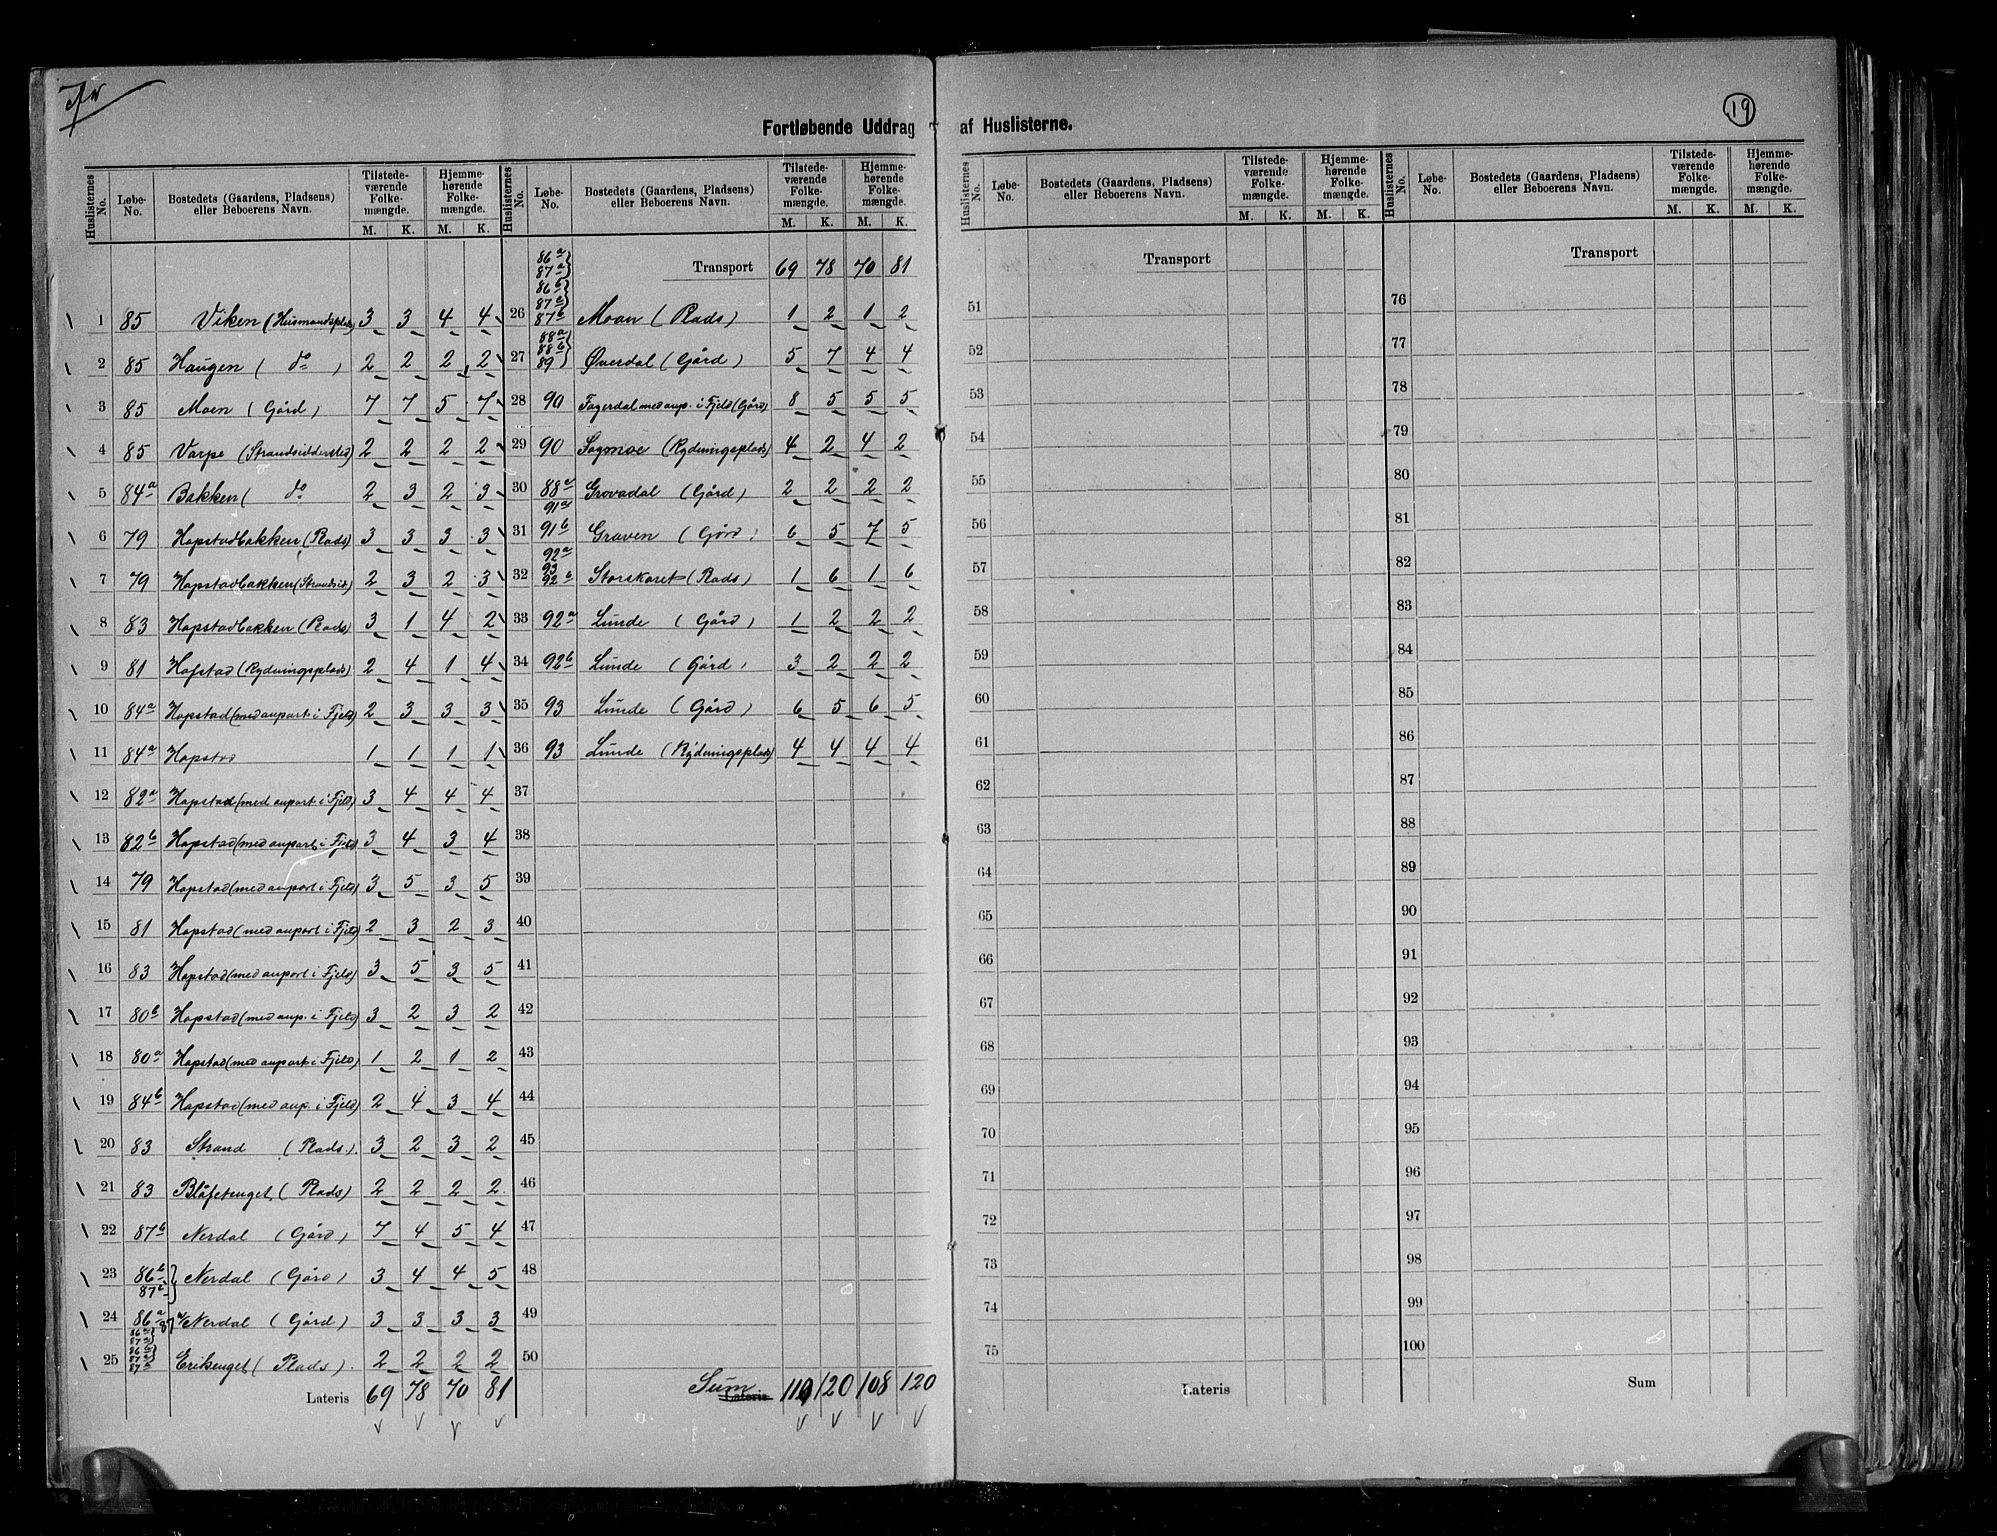 19
Fortløbende Uddrag af Huslisterne.
Huslisternes No. Løbe-No. Bostedets (Gaardens, Pladsens) eller Beboerens Navn. Tilstede-værende Folke-mængde. M. K. Hjemme-hørende Folke-mængde. M. K.
1 85 Viken (Husmandsplads) 3 3 4 4
2 85 Haugen ( do ) 2 2 2 2
3 85 Moen (Gård) 7 7 5 7
4 85 Varpe (Strandsiddersted) 2 2 2 2
5 84a Bakken ( do 2 3 2 3
6 79 Hopstadbakken (Plads) 3 3 3 3
7 79 Hopstadbakken (Strandsid) 2 3 2 3
8 83 Hopstadbakken (Plads) 3 1 4 2
9 81 Hofstad (Rydningsplads) 2 4 1 4
10 84a Hopstad (med anpart i Fjeld) 2 3 3 3
11 84a Hopstad 1 1 1 1
12 82a Hopstad (med anpart i Fjeld) 3 4 4 4
13 82b Hopstad (med anpart i Fjeld) 3 4 3 4
14 79 Hopstad (med anpart i Fjeld) 3 5 3 5
15 81 Hopstad (med anpart i Fjeld) 2 3 2 3
16 83 Hopstad (med anpart i Fjeld) 3 5 3 5
17 80b Hopstad (med anp. i Fjeld) 3 2 3 2
18 80a Hopstad (med anpart i Fjeld) 1 2 1 2
19 84b Hopstad (med anp. i Fjeld) 2 4 3 4
20 83 Strand (Plads) 3 2 3 2
21 83 Blåfetenget (Plads) 2 2 2 2
22 87b Nerdal (Gård) 7 4 5 4
23 86b 87c Nerdal (Gård) 3 4 4 5
24 86a 87a Nerdal (Gård) 3 3 3 3
25 86a 87a 86b Eriksenget (Plads) 2 2 2 2
Lateris 69 78 70 81
Huslisternes No. Løbe-No. Bostedets (Gaardens, Pladsens) eller Beboerens Navn. Tilstede-værende Folke-mængde. M. K. Hjemme-hørende Folke-mængde. M. K.
Transport 69 78 70 81
26 86a 87a 86b 87c 87b Moan (Plads) 1 2 1 2
27 88a 88b 89 Øverdal (Gård) 5 7 4 4
28 90 Fagerdal med anp. i Fjeld (Gård) 8 5 5 5
29 90 Sagmoe (Rydningsplads) 4 2 4 2
30 88a 91a Grovadal (Gård) 2 2 2 2
31 91b Graven (Gård) 6 5 7 5
32 92a 93 92b Storskaret (Plads) 1 6 1 6
33 92a Lunde (Gård) 1 2 2 2
34 92b Lunde (Gård) 3 2 2 2
35 93 Lunde (Gård) 6 5 6 5
36 93 Lunde (Rydningsplads) 4 4 4 4
37
38
39
40
41
42
43
44
45
46
47
48
49
50
Sum Lateris 110 120 108 120
Huslisternes No. Løbe-No. Bostedets (Gaardens, Pladsens) eller Beboerens Navn. Tilstede-værende Folke-mængde. M. K. Hjemme-hørende Folke-mængde. M. K.
Transport
51
52
53
54
55
56
57
58
59
60
61
62
63
64
65
66
67
68
69
70
71
72
73
74
75
Lateris
Huslisternes No. Løbe-No. Bostedets (Gaardens, Pladsens) eller Beboerens Navn. Tilstede-værende Folke-mængde. M. K. Hjemme-hørende Folke-mængde. M. K.
Transport
76
77
78
79
80
81
82
83
84
85
86
87
88
89
90
91
92
93
94
95
96
97
98
99
100
Sum